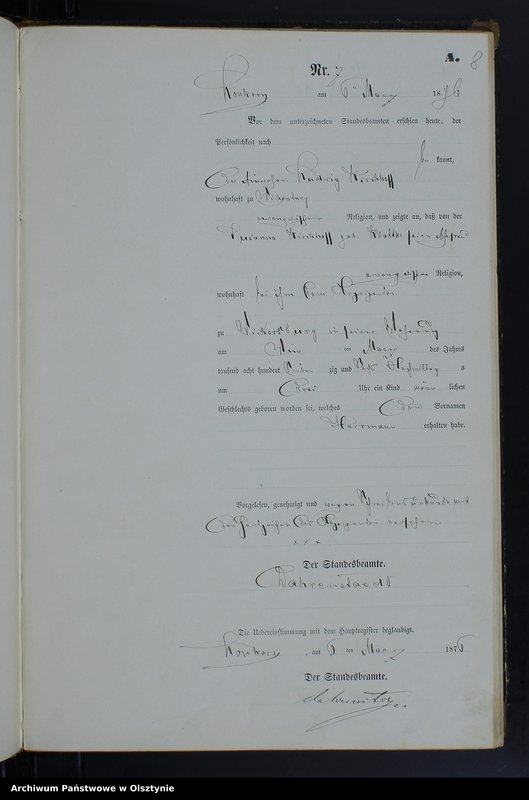 A.
8
Nr. 7
am 6ten März 1876
Vor dem unterzeichneten Standesbeamten erschien heute, der
Persönlichkeit nach
be kannt,
Ludwig Kirchhoff
wohnhaft zu
evangelischer Religion, und zeigte an, daß von der
Kirchhoff geb.
evangelischer Religion,
wohnhaft bei ihm dem Anzeigenden
zu in seiner Wohnung
am ten März des Jahrs
tausend acht hundert sieben zig und sechs Nachmittag s
um drei Uhr ein Kind männ lichen
Geschlechts geboren worden sei, welches den Vornamen
Herrmann erhalten habe.
Vorgelesen, genehmigt und wegen Schreibensunkunde mit
den Handzeichen des Anzeigenden versehen
x x x
Der Standesbeamte.
Dahrenstaedt
Die Uebereinstimmung mit dem Hauptregister beglaubigt.
am 6 ten März 1876
Der Standesbeamte.
Archiwum Państwowe w Olsztynie